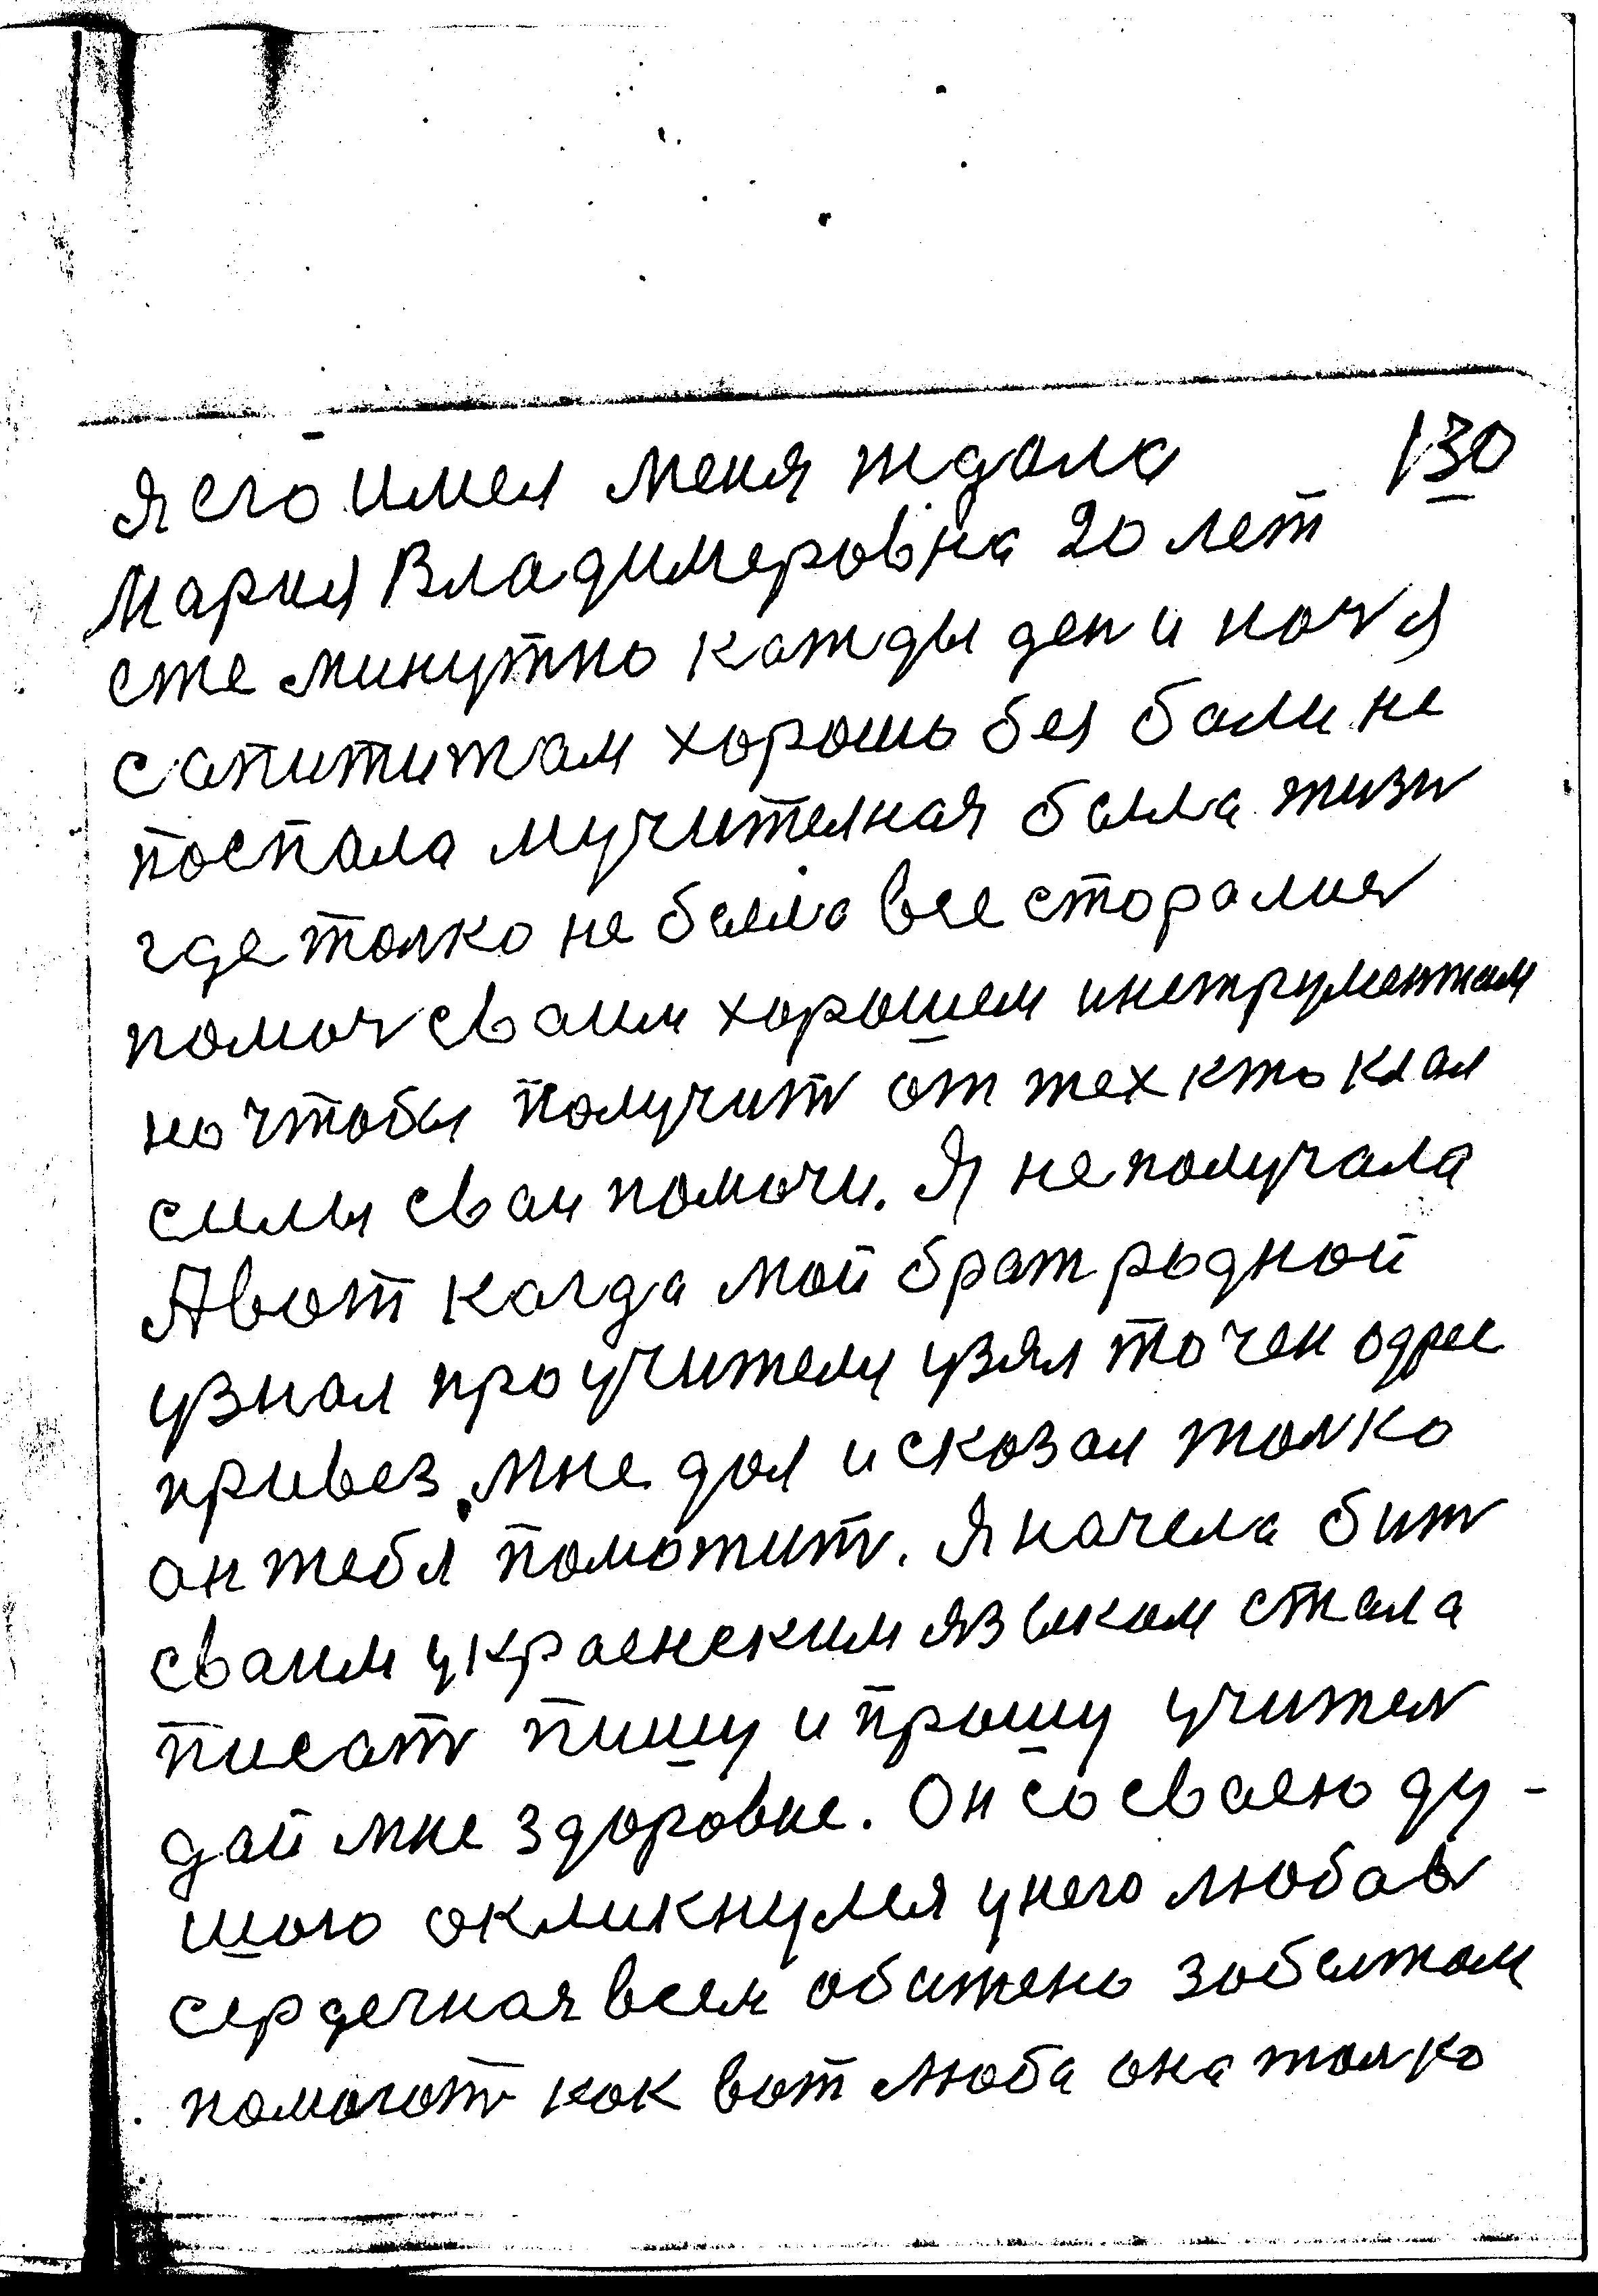 130
я его имел меня ждала
Мария Владимеровна 20 лет
сже минутно кажды ден и ноч я
с апититам хорошо без боли не
поспала мучителная была жизн
где толко не была все сторалис
помоч сваим хорошем инструментам
но чтобы получит от тех кто клал
силы сваи помочи. Я не получала
А вот когда мой брат родной
узнал про учителя узял точен одрес
привез мне дал и сказал толко
он тебя поможит. Я начела бит
сваим украенским языком стала
писат пишу и прошу учител
дай мне здоровие. Он со сваею ду-
шою окликнулся у него любов
сердечная всем обижено заблжом
помогат как вот люба она толко